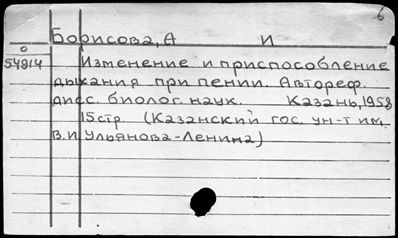 6
Борисова, А И
54814
Изменение и приспособление
дыхания при пении. Автореф.
дисс. биолог. наук. Казань, 1958
15 стр. (Казанский гос. ун-т им.
В.И. Ульянова-Ленина)